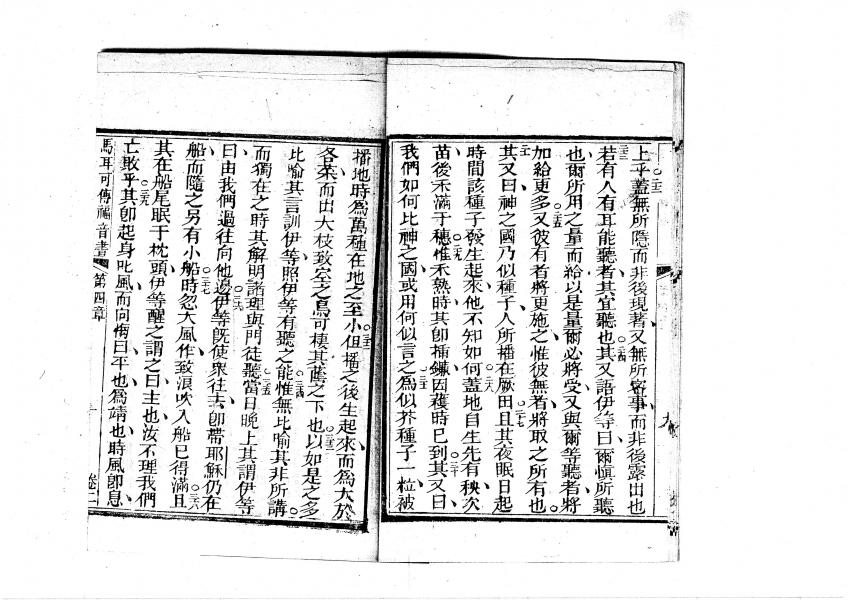 上乎蓋無所隱而非後現著又無所密事而非後露出也
若有人有耳能聽者其宜聽也其又語伊等曰爾慎所聽
也爾所用之量而給以是量爾必將受又與爾等聽者將
加給更多又彼有者將更施之惟彼無者將取之所有也
其又曰神之國乃似種子人所播在厥田且其夜眠日起
時間該種子發生起來他不知如何蓋地自生先有秧次
苗後禾滿于穗惟禾熟時其卽插鐮因穫時已到其又曰
我們如何比神之國或用何似言之爲似芥種子一粒被
播地時爲萬種在地之至小但播之後生起來而爲大於
各菜而出大枝致空之鳥可棲其蔭之下也以如是之多
比喻其言訓伊等照伊等有聽之能惟無比喻其非所講
而獨在之時其解明諸理與門徒聽當日晚上其謂伊等
曰由我們過往向他邊伊等旣使衆往去卽帶耶穌仍在
船而隨之另有小船時忽大風作致浪吹入船已得滿且
其在船尾眠于枕頭伊等醒之謂之曰主也汝不理我們
亡敗乎其卽起身叱風而向海曰平也爲靖也時風卽息
馬耳可傳福音書 第四章 卷二